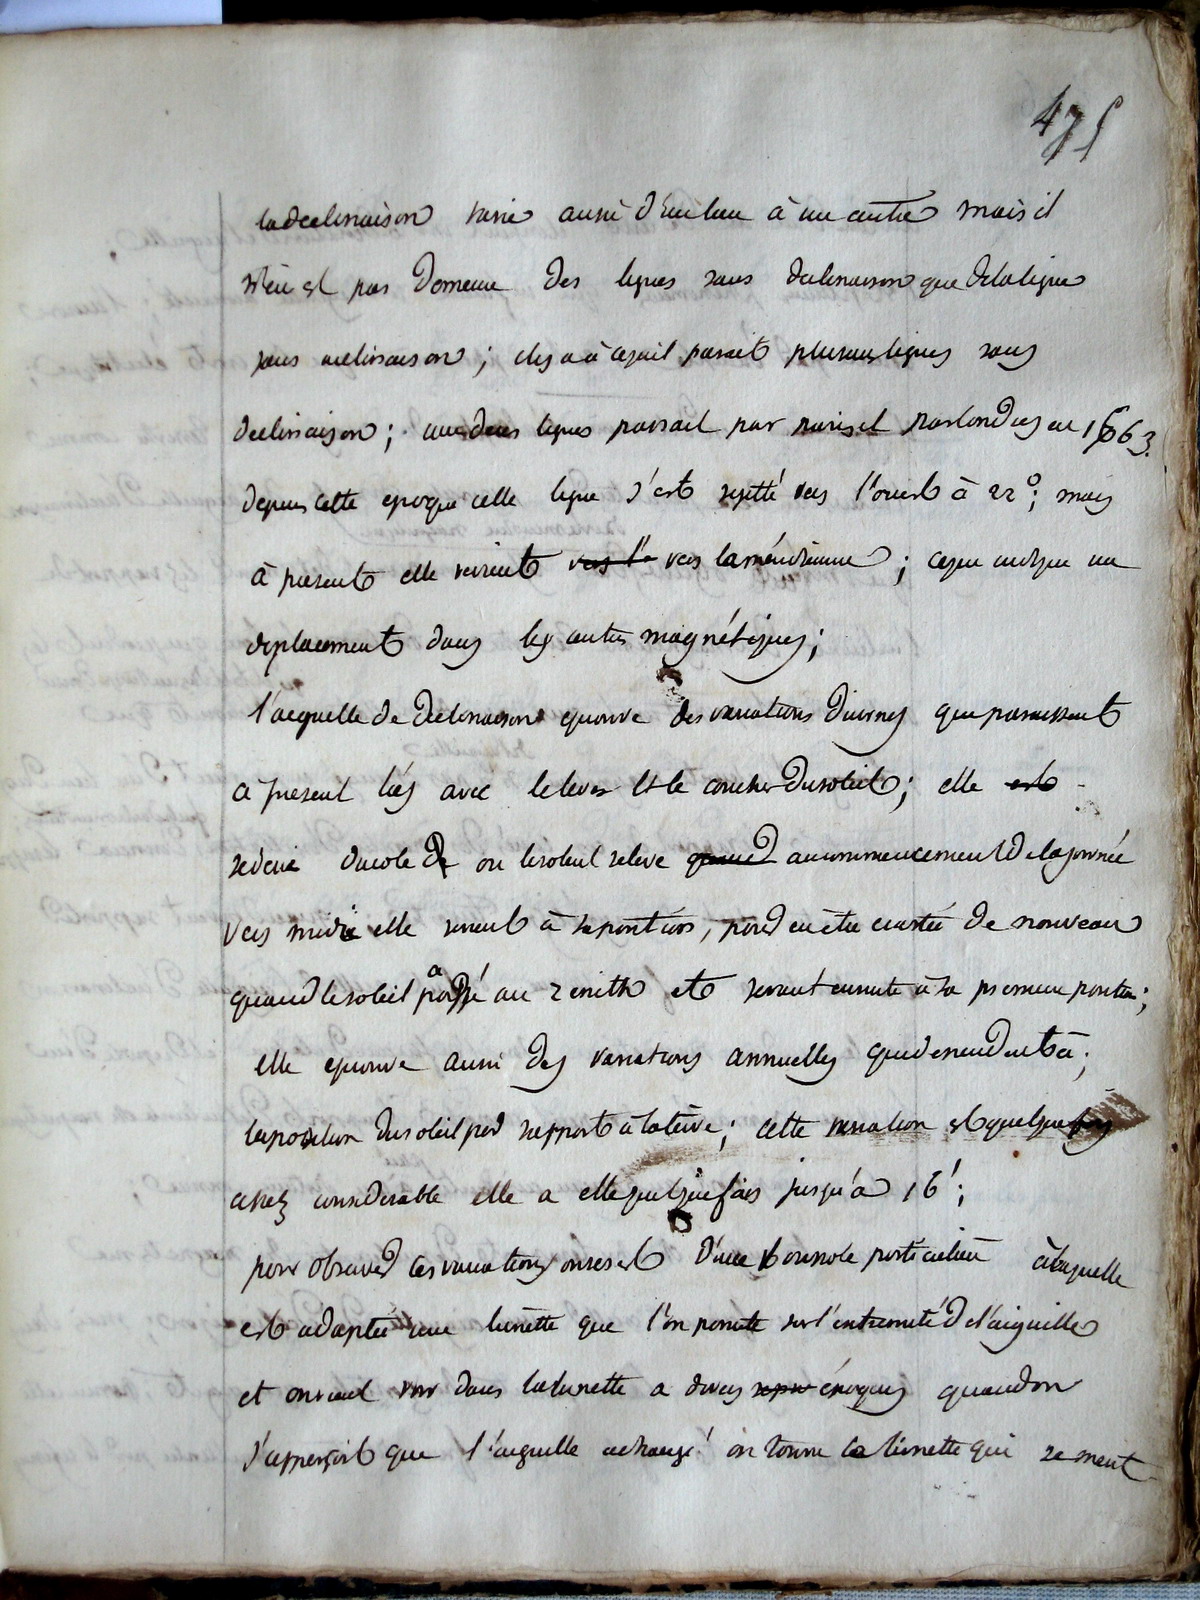 475
la declinaison varie aussi d'un lieu à un autre mais il
n'en est pas de meme des lignes sans declinaison que de la ligne
sans inclinaison; il y a à ce qu'il parait plusieurs lignes sans
declinaison; une des lignes passait par paris et par londres en 1663.
depuis cette epoque cette ligne s'est rejetté vers l'ouest à 22°; mais
à present elle revient vers l'o vers la méridienne; ce qui indique un
deplacement dans les centres magnétiques;
l'aiguille de declinaison eprouve des variations diurnes qui paraissent
a present liés avec le lever et le coucher du soleil; elle est
devie du cote de ou le soleil se leve quand au commencement de la journée
vers midi elle revient à sa position, pour en être ecartée de nouveau
quand le soleil a passé au zenith et revient ensuite à sa premiere position;
elle eprouve aussi des variations annuelles qui dependent à
la position du soleil par rapport à la terre; cette variation est quelque fois
assez considerable elle a été quelque fois jusqu'à 16';
pour observer ces variations on se sert d'une boussole particuliere à laquelle
est adaptée une lunette que l'on pointe sur l'extremité de l'aiguille
et on vient voir dans la lunette a divers epoques quand on
s'apperçoit que l'aiguille a changé on tourne la lunette qui se meut